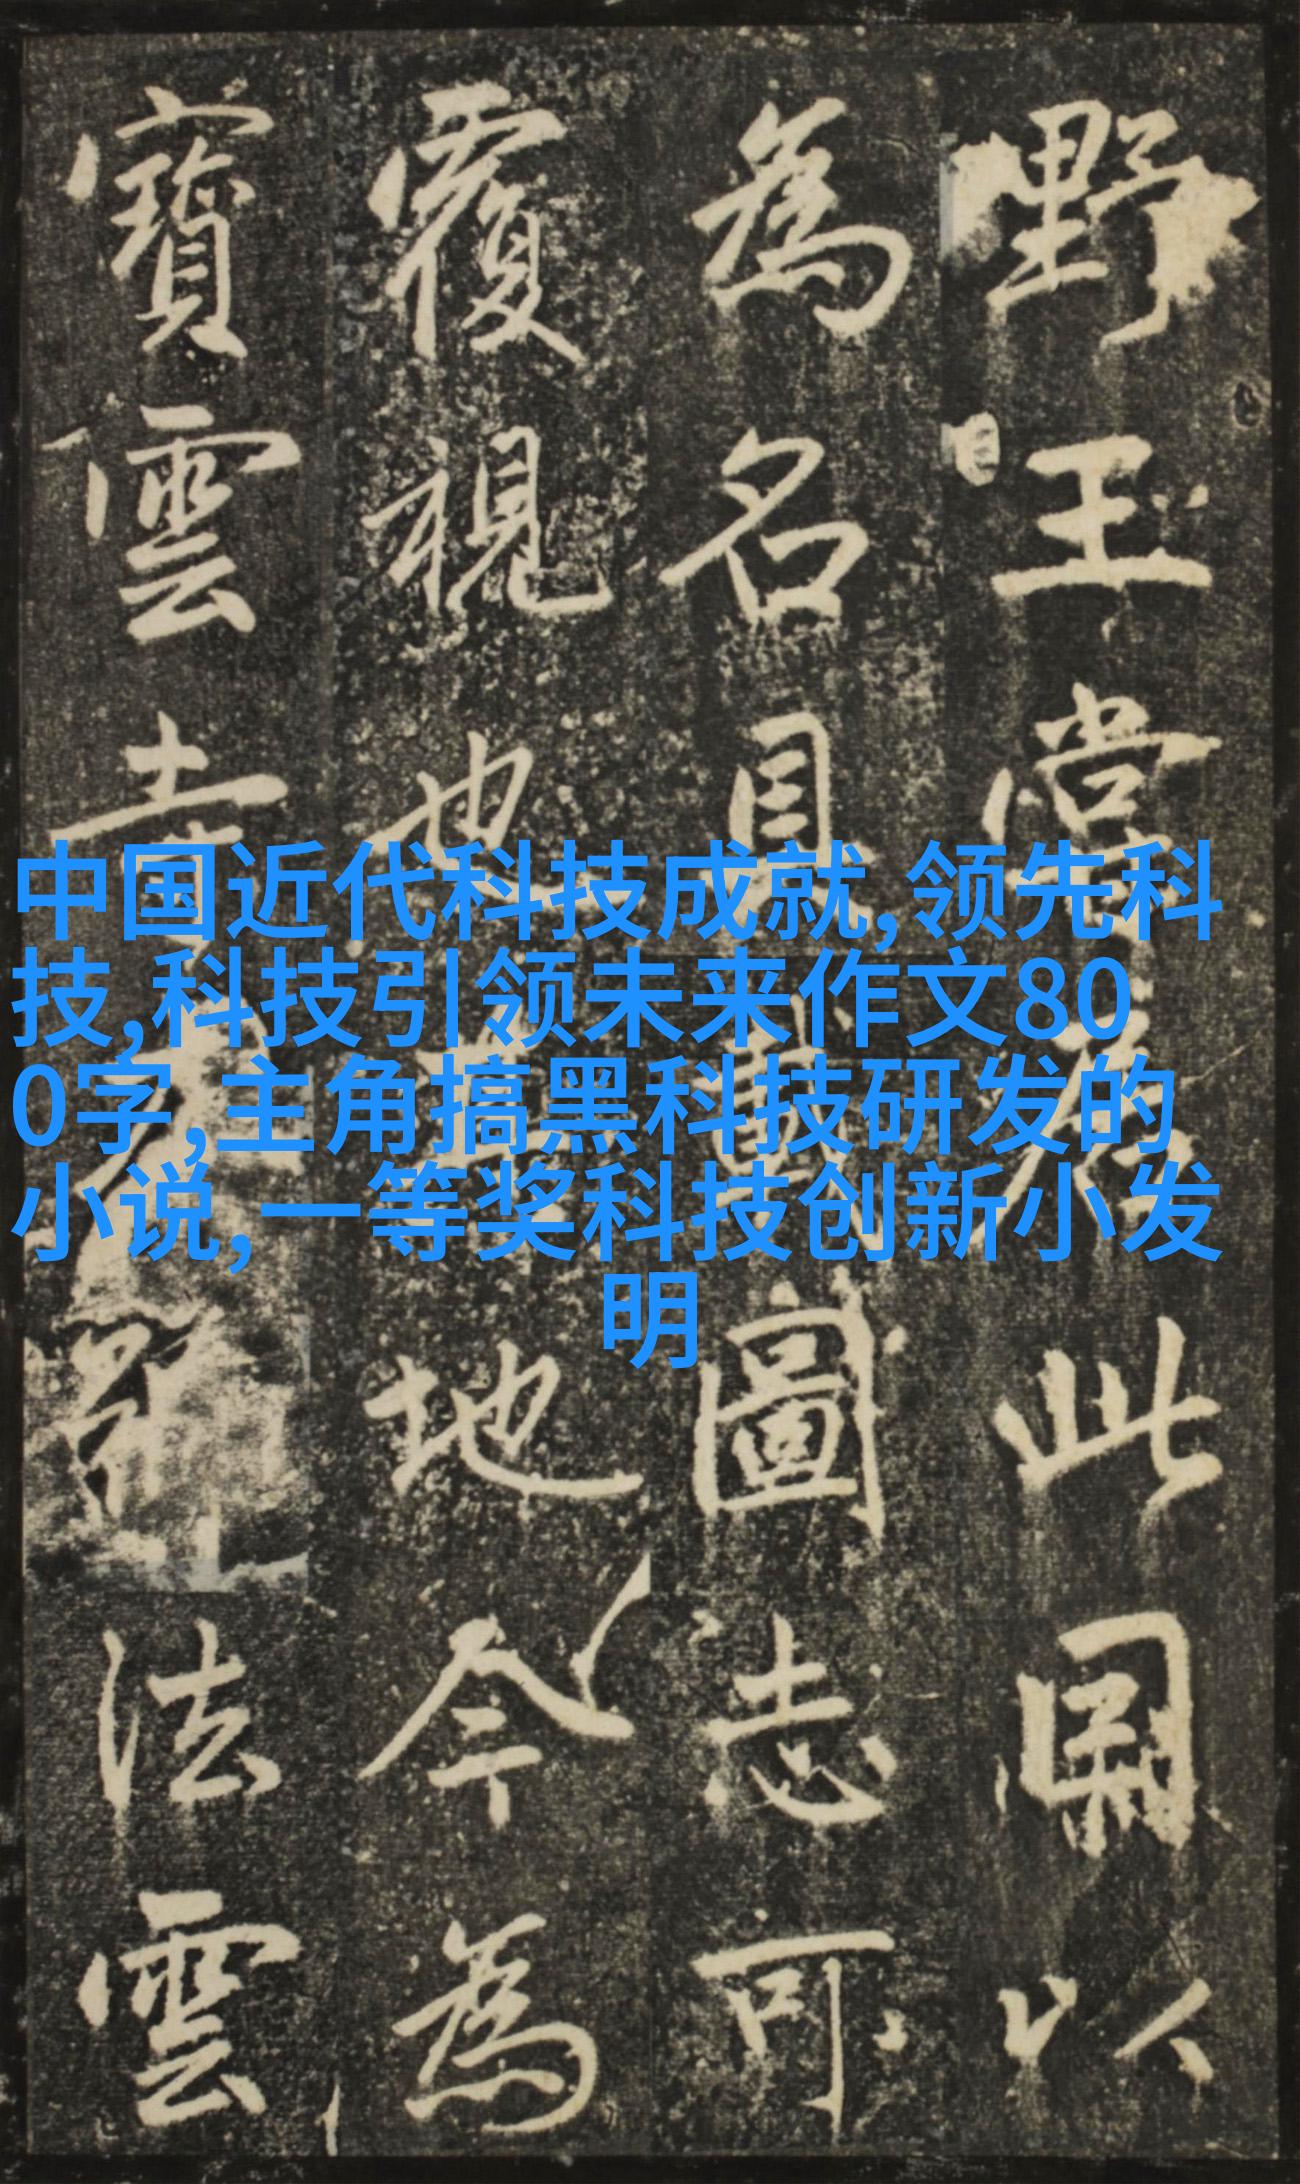 野王嘗居此因以
為名具載圖志可
覆視也其地今為
寶雲寺法雲
中国近代科技成就,领先科
技,科技引领未来作文80
0字,主角搞黑科技研发的
小说,一等奖科技创新小发
明